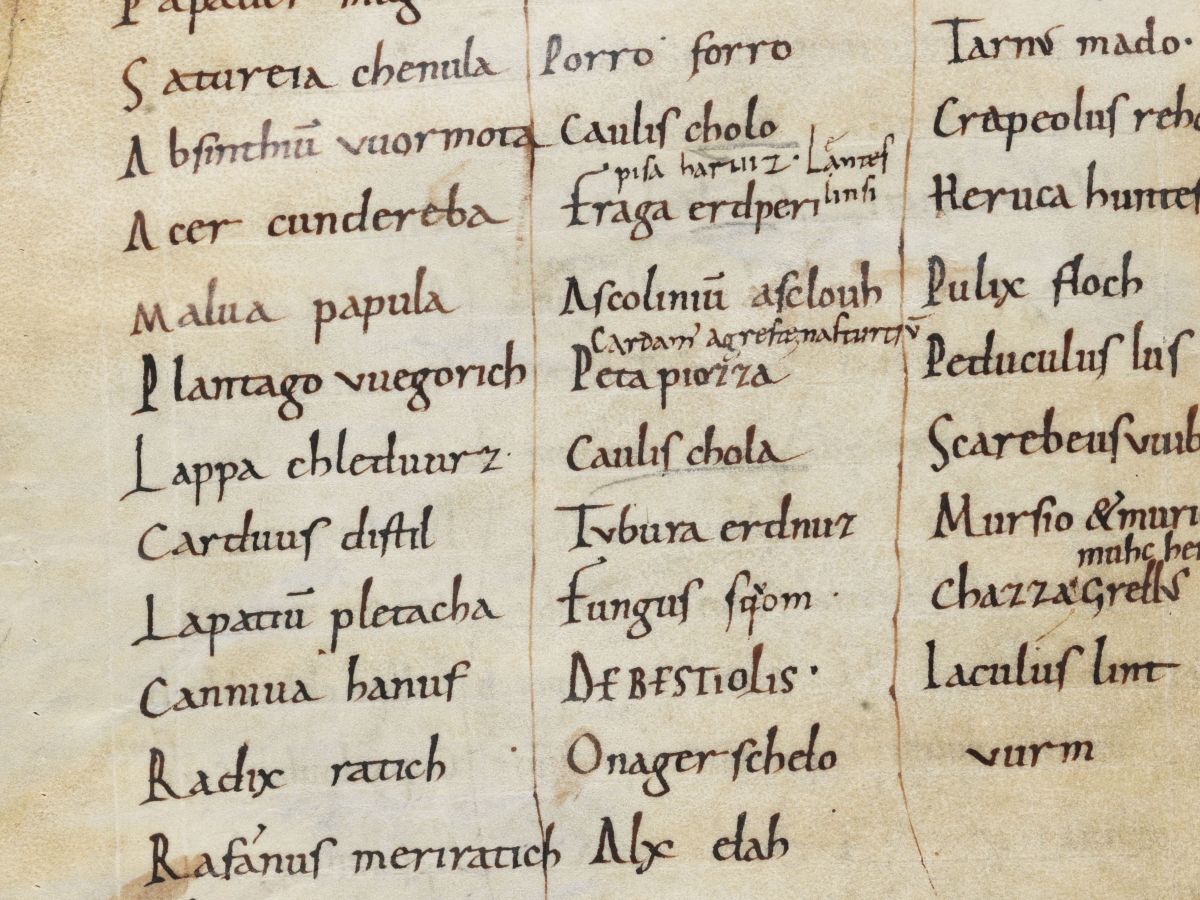 Papauer mag
Satureia chenula
Absinthiū vuormota
Acer cundereba
Malua papula
Plantago vuegorich
Lappa chletduurz
Carduus distil
Lapatiū pletacha
Canniua hanuf
Radix ratich
Rafanus meriratich
Porro forro
Caulis cholo
pisa haruuiz · Lantes
linsi
Fraga erdperi
Ascoliniū asclouh
Cardam agreste nasturtiū
Peta piozza
Caulis chola
Tubura erdnuz
Fungus sqom ·
DE BESTIOLIS ·
Onager schelo
Alx elah
mado·
Crapeolus reho
Heruca huntes
Pulix floch
Peduculus lus
Scarebeus vuib
Mursio & muri
muhc hei
chazza Grells
Iaculus lint
vurm